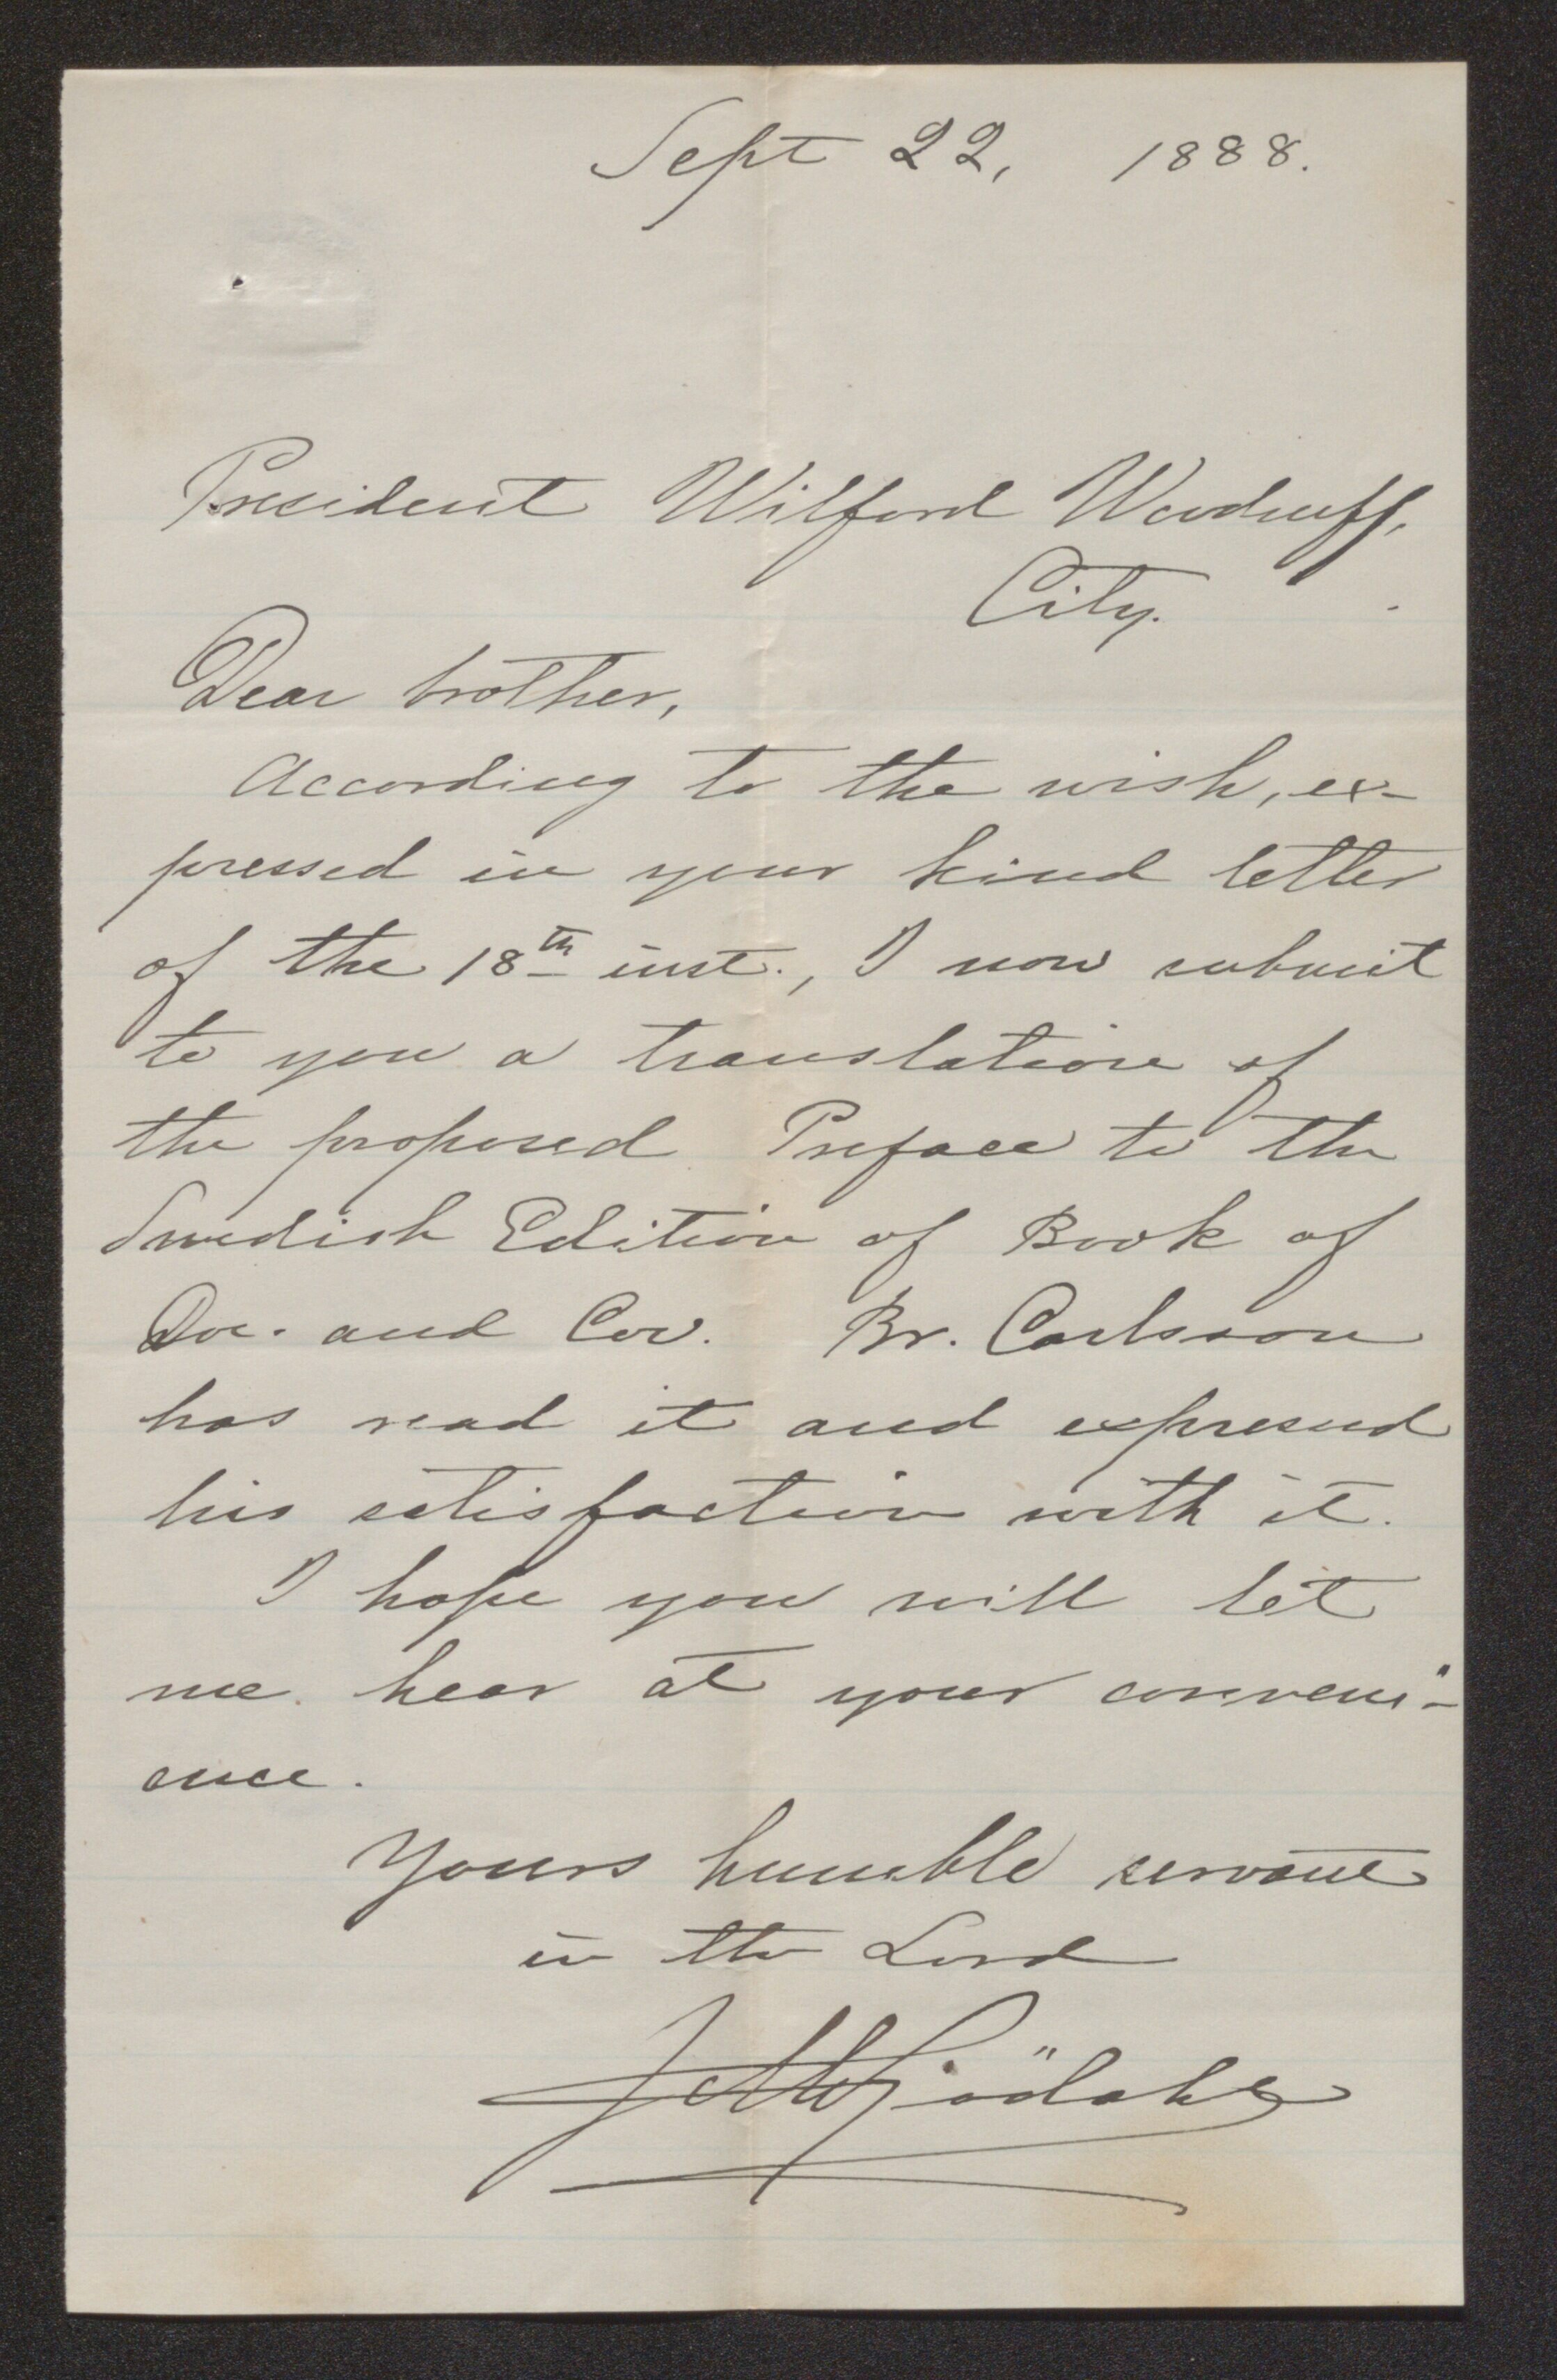 Sept 22, 1888.
President Wilford Woodruff,
City.
Dear brother,
According to the wish, ex-
pressed in your kind letter
of the 18th inst., I now submit
to you a translation of
the proposed Preface to the
Swedish Edition of Book of
Doc. and Cov. Br. Carlsson
has read it and expressed
his satisfaction with it.
I hope you will let
me hear at your conveni-
ence.
Yours humble servant
in the Lord
J M Sjödahl